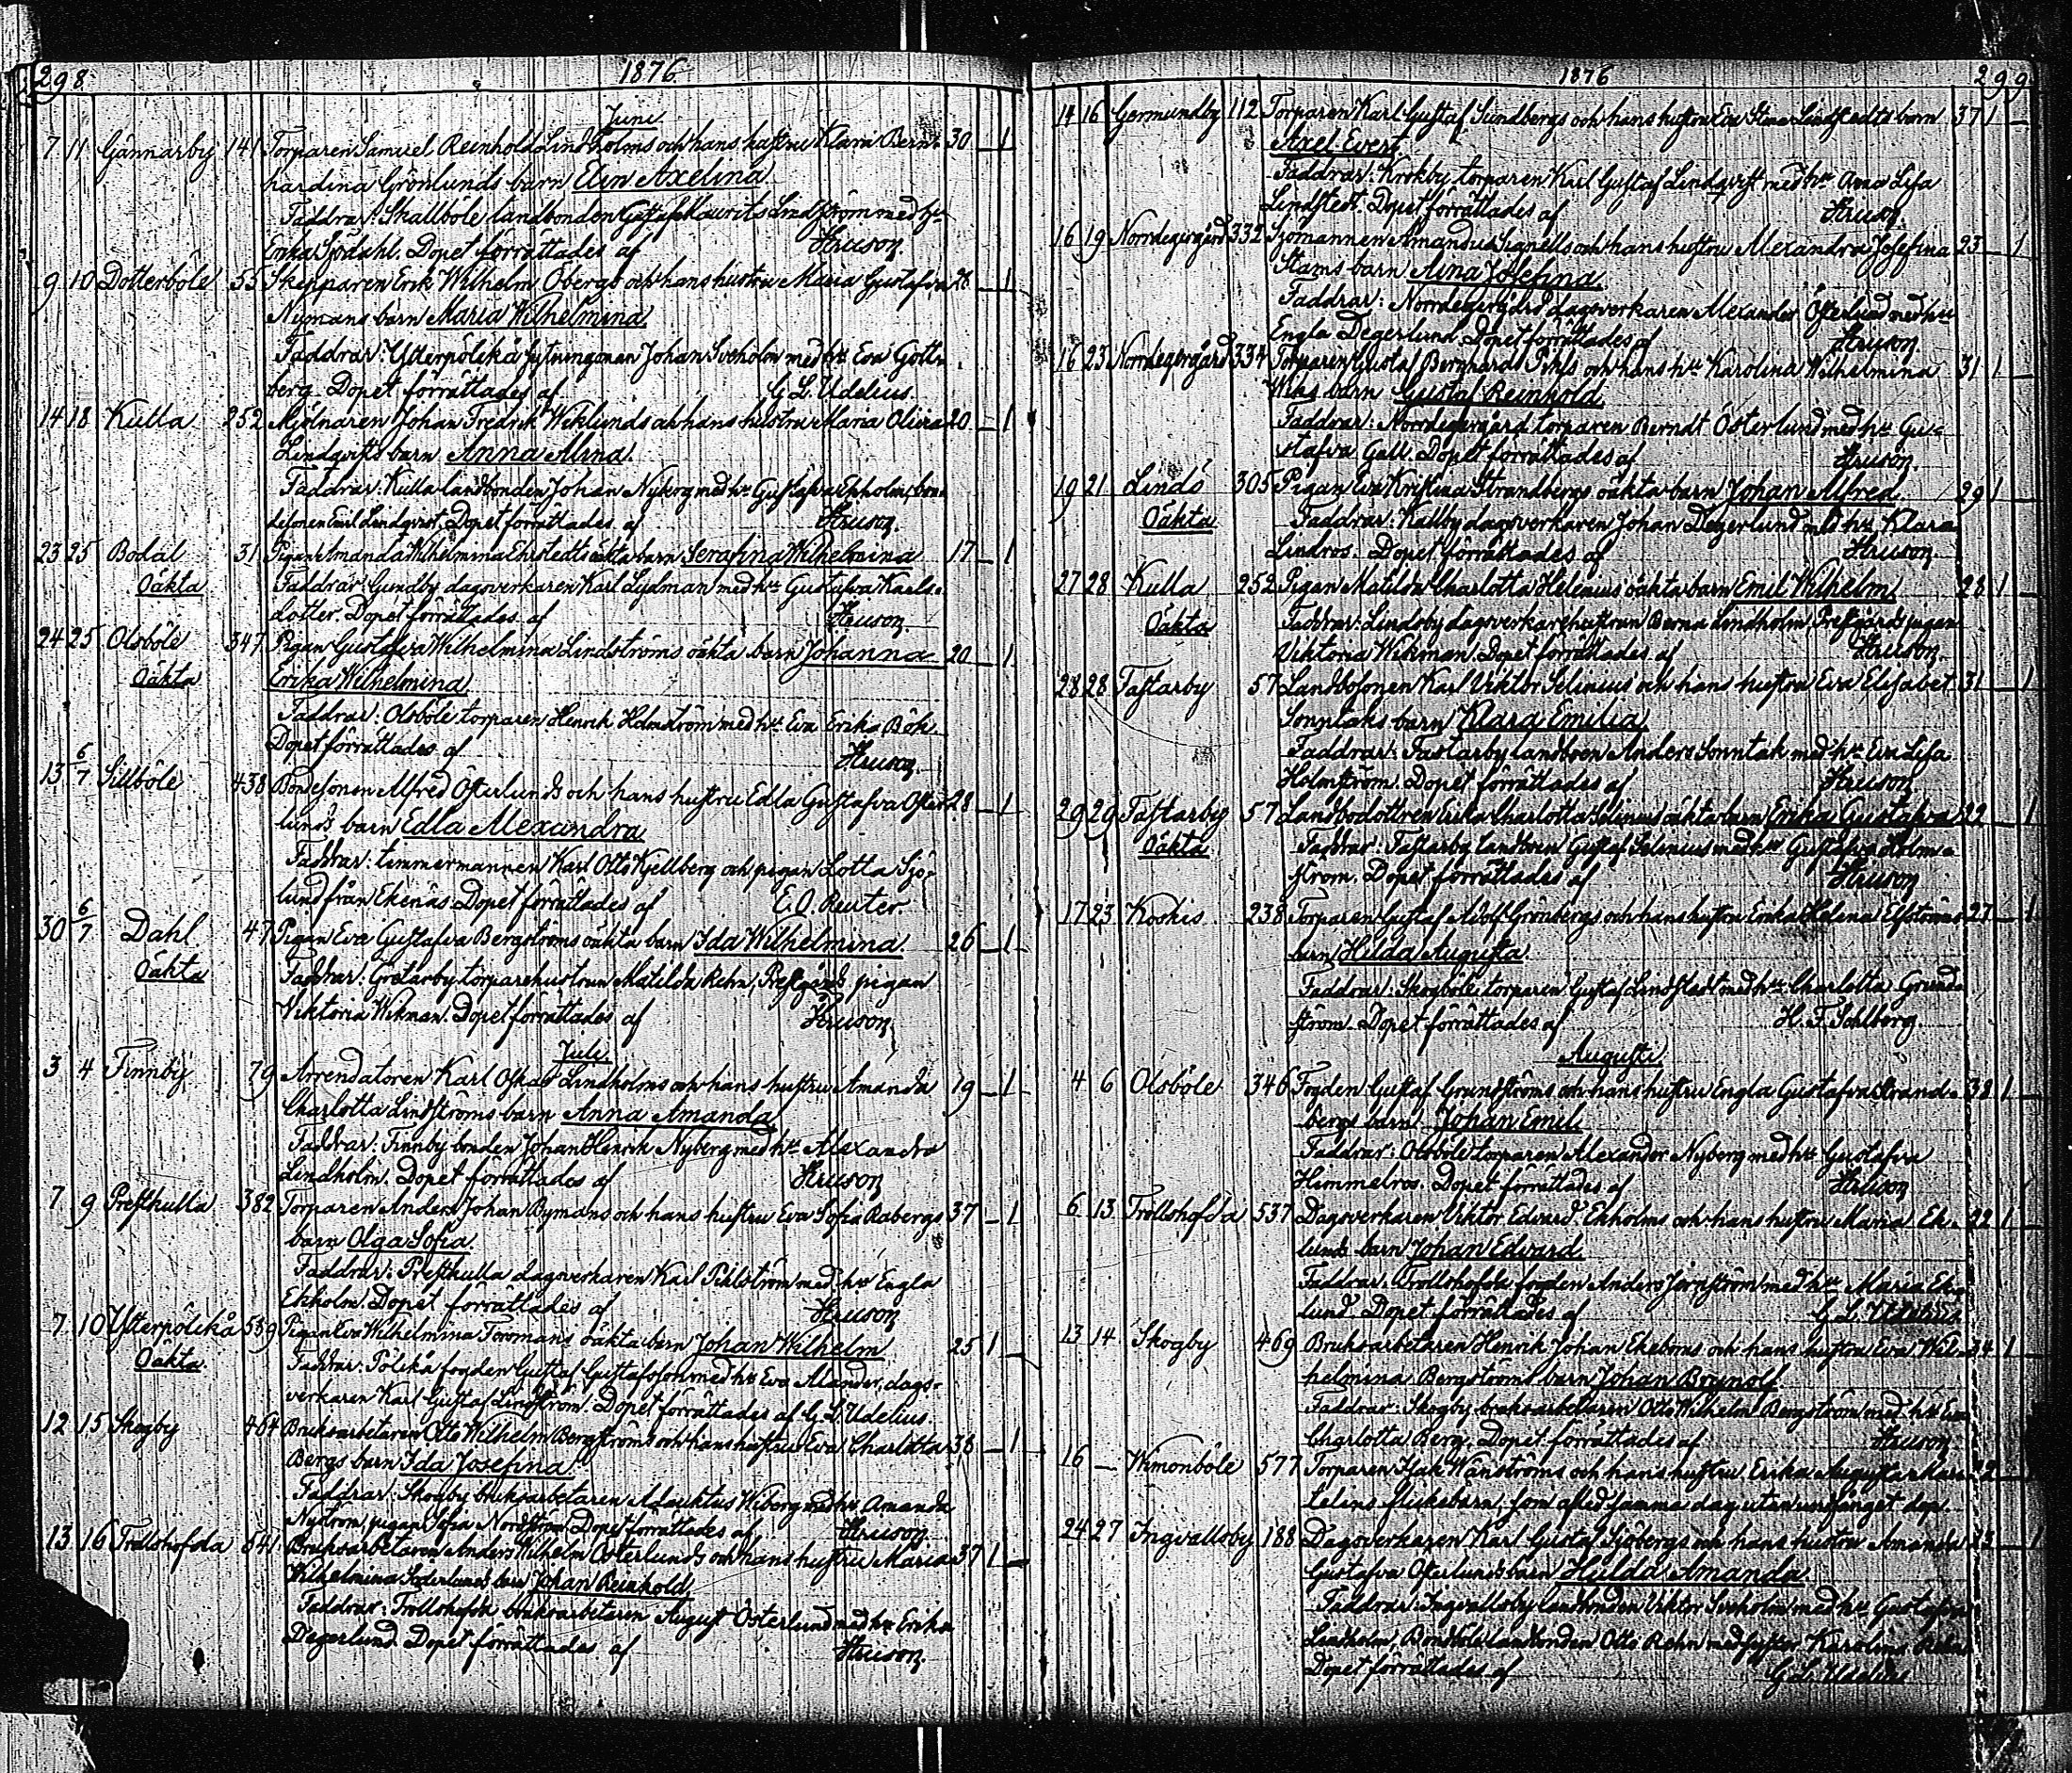 298 1876
Juni
7 11 Gännarby 141 Torparen Samuel Reinhold Lindholms och hans hustru Klara Bern- 30 – 1
hardina Grönlunds barn Elin Axelina
Faddrar: Skallböle landbonden Gustaf Maurits Lindström med h:u
Erika Sjödahl. Dopet förrättades af Hruson.
9 10 Dotterböle 55 Skepparen Erik Wilhelm Öbergs och hans hustru Maria Gustafva – 1
Nymans barn Maria Wilhelmina
Faddrar: Ytterpölikå Johan Sveholm med h:u Eva Gott-
berg. Dopet förrättades af G L Udelius.
14 18 Kulla 252 Mjölnaren Johan Fredrik Wiklunds och hans hustru Maria Olivia 20 – 1
Lindqvists barn Anna Alina
Faddrar: Kulla landbonden Johan Nykog med h:u Gustafva Ekholm, bon-
desonen Emil Lindqvist. Dopet förrättades af Hruson.
23 25 Bodal 31 Pigan Amanda Wilhelmina Ehrstedts oäkta barn Serafina Wilhelmina 17 – 1
Oäkta Faddrar: Gundby dagsverkaren Karl Lydman med h:u Gustafva Karls-
dotter. Dopet förrättades af Hruson.
24 25 Olsböle 347 Pigan Gustafva Wilhelmina Lindströms oäkta barn Johanna 20 – 1
Oäkta Erika Wilhelmina
Faddrar: Olsböle torparen Henrik Holmström med h:u Eva Erika Bök.
Dopet förrättades af Hruson.
13 6/7 Sillböle 438 Bondesonen Alfred Österlunds och hans hustru Edla Gustafva Öster- 28 – 1
lunds barn Edla Alexandra
Faddrar: timmermannen Karl Otto Kjellberg och pigan Lotta Sjö-
lund från Ekenäs. Dopet förrättades af E. O. Reuter.
30 6/7 Dahl 47 Pigan Eva Gustafva Bergströms oäkta barn Ida Wilhelmina 26 – 1
Oäkta Faddrar: Grotarby torparehustrun Matilda Rehn, Prestgårds pigan
Viktoria Wikman. Dopet förrättades af Hruson.
Juli
3 4 Finnby 79 Arrendatoren Karl Oskar Lindholms och hans hustru Amanda 19 – 1
Charlotta Lindströms barn Anna Amanda
Faddrar: Finnby bonden Johan Henrik Nyberg med h:u Alexandra
Lindholm. Dopet förrättades af Hruson
7 9 Prestkulla 382 Torparen Anders Johan Bymans och hans hustru Eva Sofia Rabergs 37 – 1
barn Olga Sofia
Faddrar: Prestkulla dagsverkaren Karl Pihlström med h:u Engla
Ekholm. Dopet förrättades af Hruson
7 10 Ytterpölikå 539 Pigan Eva Wilhelmina Foromans oäkta barn Johan Wilhelm 25 1 –
Oäkta Faddrar: Pölikå fogden Gustaf Gustafsson med h:u Eva Alander, dags-
verkaren Karl Gustaf Lindström. Dopet förrättades af G L Udelius.
12 15 Skogby 464 Bruksarbetaren Otto Wilhelm Bergströms och hans hustru Eva Charlotta 36 – 1
Bergs barn Ida Josefina
Faddrar: Skogby bruksarbetaren Adauktus Wiberg med h:u Amanda
Nyström, pigan Sofia Nordström. Dopet förrättades af Hruson.
13 16 Trollshofda 541 Bruksarbetaren Anders Wilhelm Österlunds och hans hustru Maria 37 1 –
Wilhelmina Söderlunds barn Johan Reinhold
Faddrar: Trollshofda bruksarbetaren August Österlund med h:u Erika
Degerlund. Dopet förrättades af Hruson.
1876 299
14 16 Germundby 112 Torparen Karl Gustaf Sundbergs och hans hustru Eva Stina Lindstedts barn 37 1 –
Axel Evert
Faddrar: Krokby torparen Karl Gustaf Lindqvist med h:u Anna Lisa
Lindstedt. Dopet förrättades af Hruson.
16 19 Norrdegergård 332 Sjömannen Amandus Signells och hans hustru Alexandra Josefina 23 – 1
Stams barn Aina Josefina
Faddrar: Norrdegergård dagsverkaren Alexander Österlund med h:u
Engla Degerlund. Dopet förrättades af Hruson
16 23 Norrdegergård 334 Torparen Gustaf Bernhard Pihls och hans h:u Karolina Wilhelmina 31 1
Wias barn Gustaf Reinhold
Faddrar: Norrdegergård torparen Berndt Österlund med h:u Gu-
stafva Gall. Dopet förrättades af Hruson.
19 21 Lindö 305 Pigan Eva Kristina Strandbergs oäkta barn Johan Alfred 29 1 –
Oäkta Faddrar: Kållby dagsverkaren Johan Degerlund med h:u Klara
Lindros. Dopet förrättades af Hruson.
27 28 Kulla 252 Pigan Matilda Charlotta Helenius oäkta barn Emil Wilhelm 28 1 –
Oäkta Faddrar: Lindsby dagsverkarehustrun Berna Lindholm, Prestgårds pigan
Viktoria Wikman. Dopet förrättades af Hruson.
28 28 Tastarby 57 Landbosonen Karl Viktor Selenius och hans hustru Eva Elisabet 31 – 1
Sonntaks barn Klara Emilia
Faddrar: Tastarby landboen Anders Sonntak med h:u Eva Lisa
Holmström. Dopet förrättades af Hruson
29 29 Tastarby 57 Landbodottren Erika Charlotta Selenius oäkta barn Erika Gustafva 22 – 1
Oäkta Faddrar: Tastarby landboen Gustaf Selenius med h:u Gustafva Holm-
ström. Dopet förrättades af Hruson
17 23 Koskis 238 Torparen Gustaf Adolf Grönbergs och hans hustru Erika Helena Elfströms 27 – 1
barn Hilda Augusta
Faddrar: Skogböle torparen Gustaf Lindstedt med h:u Charlotta Grund-
ström. Dopet förrättades af H. F. Sohlberg.
Augusti
4 6 Olsböle 346 Fogden Gustaf Grundströms och hans hustru Engla Gustafva Strand- 38 1 –
bergs barn Johan Emil
Faddrar: Olsböle torparen Alexander Nyberg med h:u Gustafva
Himmelros. Dopet förrättades af Hruson
6 13 Trollshofda 537 Dagsverkaren Viktor Edvard Ekholms och hans hustru Maria Ek- 22 1 –
lunds barn Johan Edvard
Faddrar: Trollshofda fogden Anders Jernström med h:u Maria Ek-
lund. Dopet förrättades af G L Udelius
13 14 Skogby 469 Bruksarbetaren Henrik Johan Ekeboms och hans hustru Eva Wil- 34 1
helmina Bergströms barn Johan Brynolf
Faddrar: Skogby bruksarbetaren Otto Wilhelm Bergström med h:u Eva
Charlotta Berg. Dopet förrättades af Hruson
16 – Wimonböle 577 Torparen Isak Wänströms och hans hustru Erika Augusta Mar-
telins flickebarn, som afled samma dag utan undfånget dop.
24 27 Ingvallsby 188 Dagsverkaren Karl Gustaf Sjöbergs och hans hustru Amanda 23 – 1
Gustafva Österlunds barn Hulda Amanda
Faddrar: Ingvallsby landbonden Viktor Sveholm med h:u Gustafva
Lindholm, landbonden Otto Rehn med syster Karolina Rehn
Dopet förrättades af G L Udelius